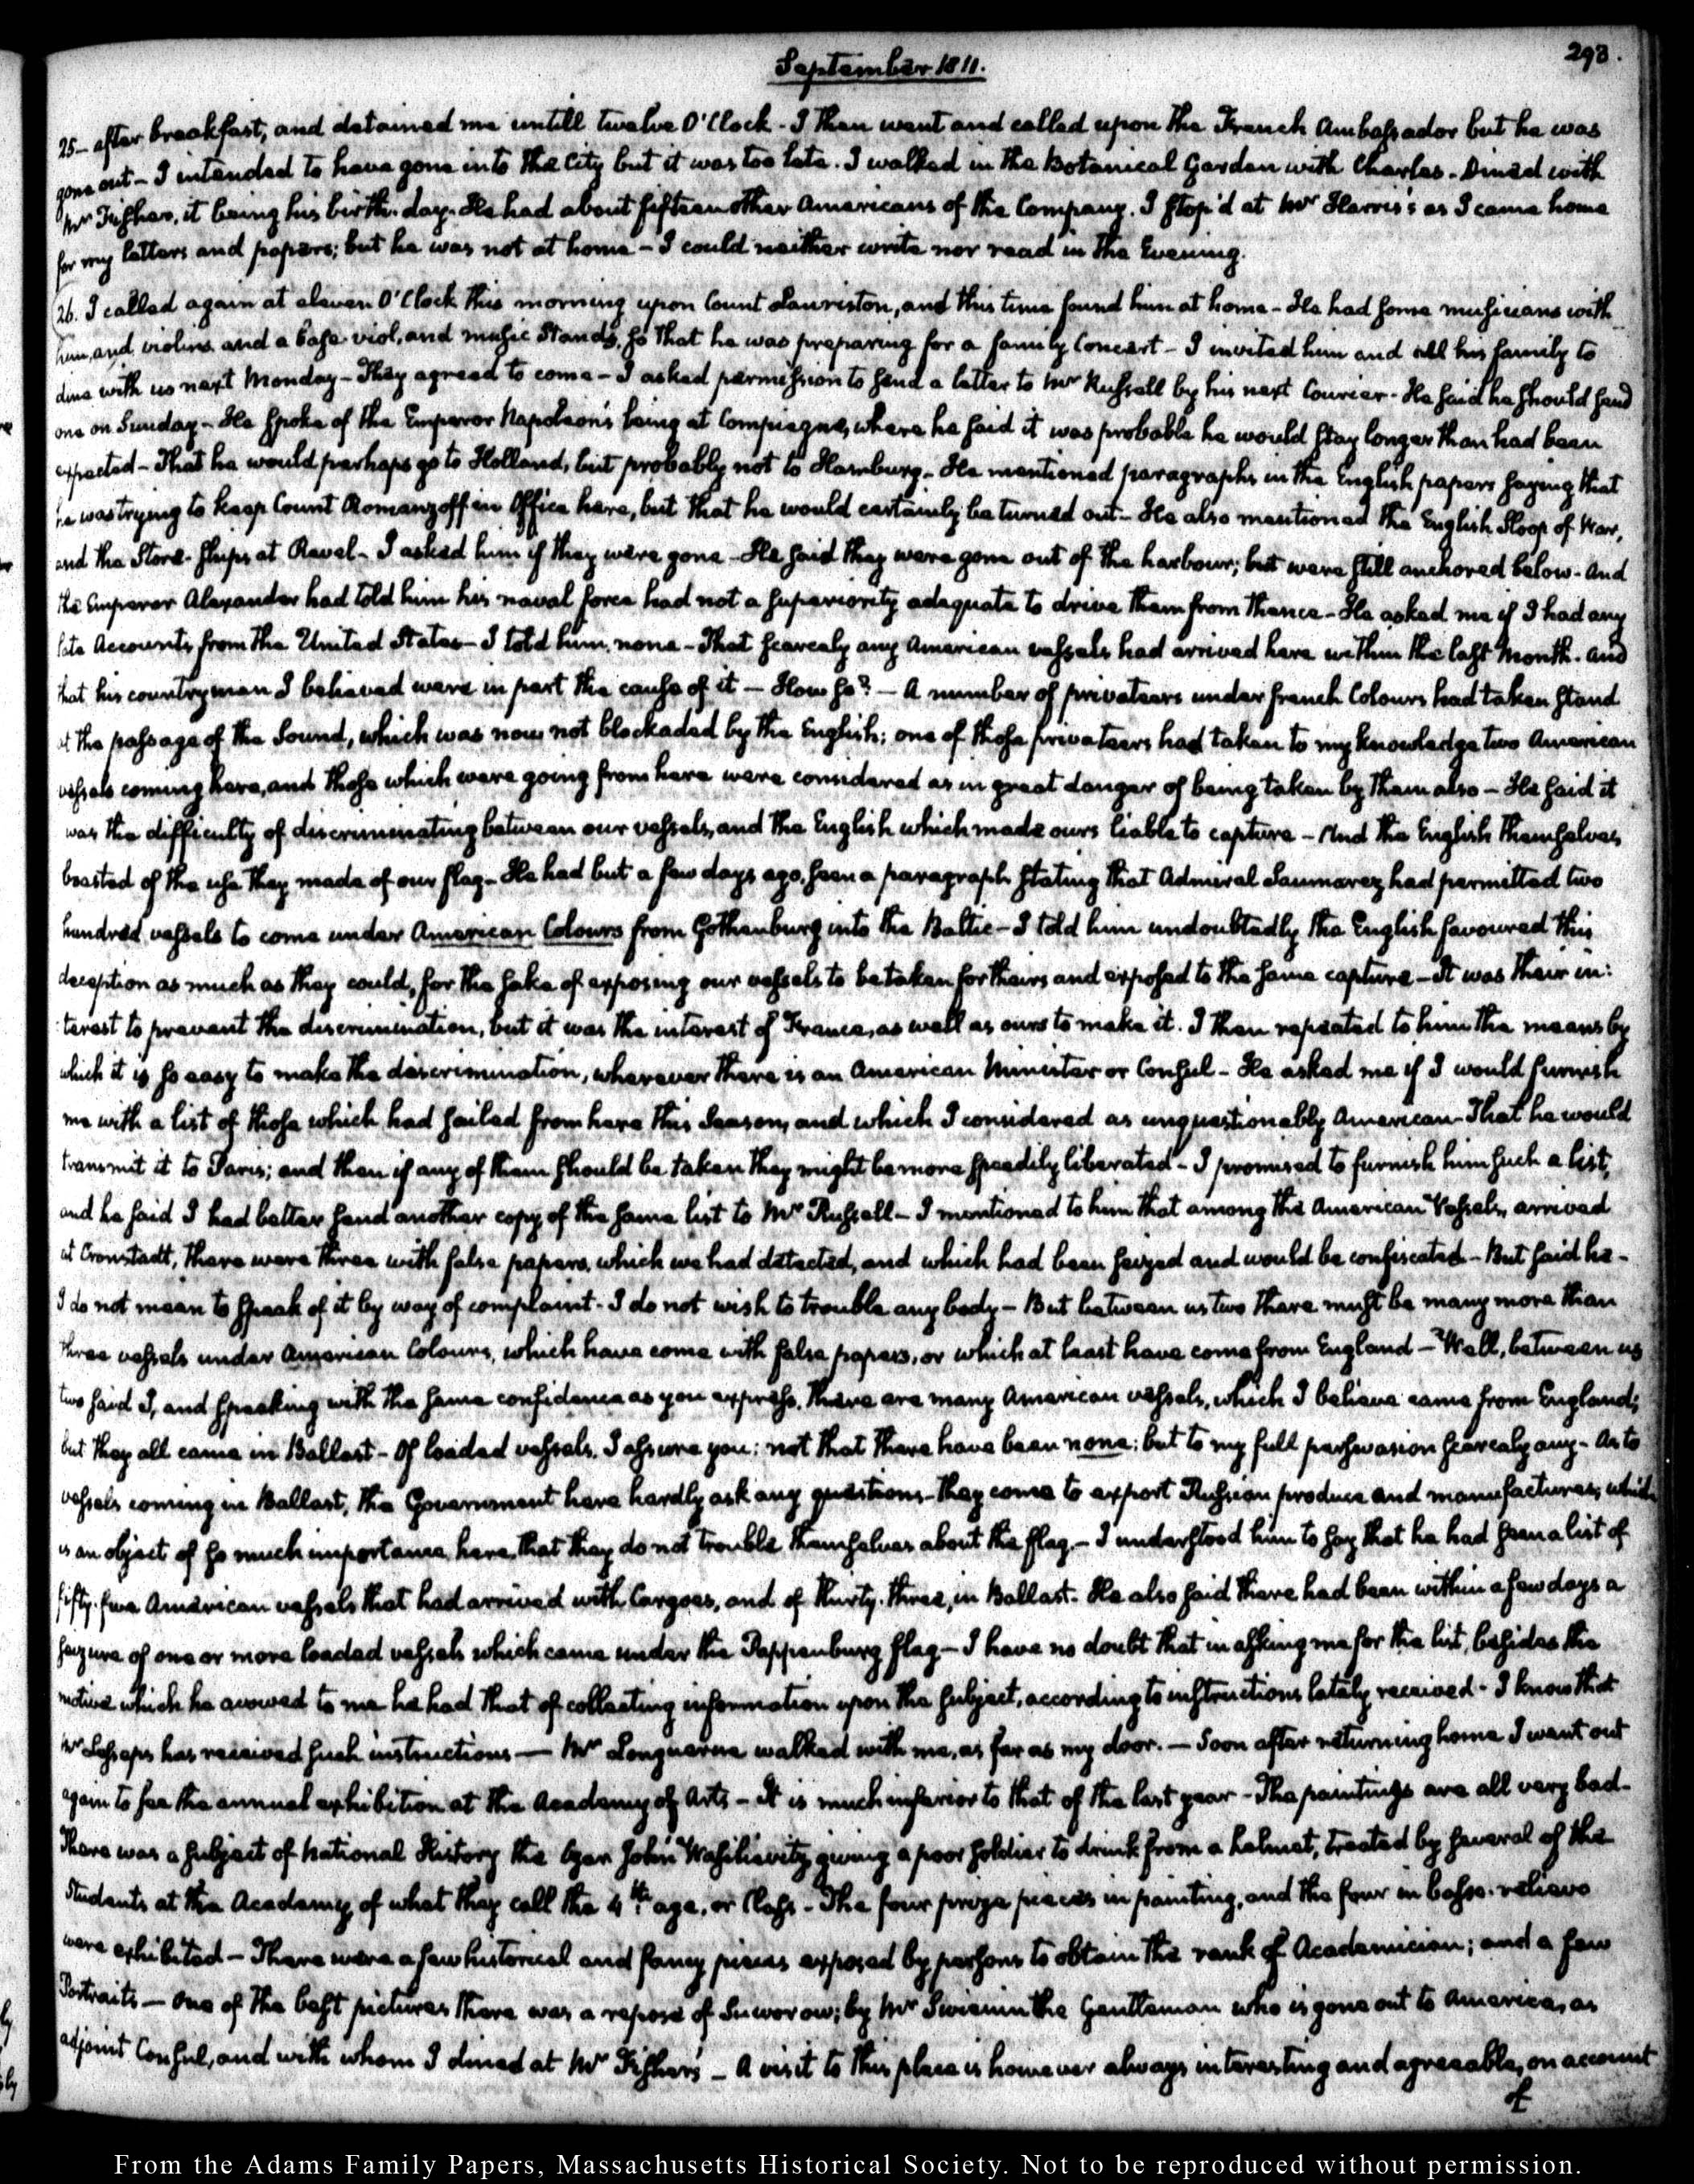 September 1811.
293.
25- after breakfast, and detained me untill twelve O'Clock - I then went and called upon the French Ambassador but he was
gone out - I intended to have gone into the City but it was too late. I walked in the Botanical Garden with Charles - Dined with
Mr Fisher, it being his birth-day. He had about fifteen other Americans of the Company. I stop'd at Mr Harris's as I came home
for my letters and papers; but he was not at home - I could neither write nor read in the Evening.
26. I called again at eleven O'Clock this morning upon Count Lauriston, and this time found him at home - He had some musicians with
him, and violins and a base-viol, and music Stands, so that he was preparing for a family Concert - I invited him and all his family to
dine with us next Monday - They agreed to come - I asked permission to send a letter to Mr Russell by his next Courier - He said he should send
one on Sunday - He spoke of the Emperor Napoleon's being at Compiegne, where he said it was probable he would stay longer than had been
expected - That he would perhaps go to Holland, but probably not to Hamburg - He mentioned paragraphs in the English papers saying that
he was trying to keep Count Romanzoff in Office here, but that he would certainly be turned out - He also mentioned the English Sloop of War,
and the Store-ships at Reval - I asked him if they were gone - He said they were gone out of the harbour; but were still anchored below - And
the Emperor Alexander had told him his naval force had not a superiority adequate to drive them from thence - He asked me if I had any
late Accounts from the United States - I told him, none - That scarcely any American vessels had arrived here within the last Month - And
that his countrymen I believed were in part the cause of it - How so? - A number of privateers under french Colours had taken stand
at the passage of the Sound, which was now not blockaded by the English; one of those privateers had taken to my knowledge two American
vessels coming here, and those which were going from here were considered as in great danger of being taken by them also - He said it
was the difficulty of discriminating between our vessels, and the English which made ours liable to capture - And the English themselves,
boasted of the use they made of our flag - He had but a few days ago, seen a paragraph stating that Admiral Saumarez had permitted two
hundred vessels to come under American Colours from Gothenburg into the Baltic - I told him undoubtedly the English favoured this
deception as much as they could, for the sake of exposing our vessels to be taken for theirs and exposed to the same capture - It was their in:
:terest to prevent the discrimination, but it was the interest of France, as well as ours to make it. I then repeated to him the means by
which it is so easy to make the discrimination, wherever there is an American Minister or Consul - He asked me if I would furnish
me with a list of those which had sailed from here this Season, and which I considered as unquestionably American - That he would
transmit it to Paris; and then if any of them should be taken they might be more speedily liberated - I promised to furnish him such a list,
and he said I had better send another copy of the same list to Mr Russell - I mentioned to him that among the American Vessels, arrived
at Cronstadt, there were three with false papers, which we had detected, and which had been seized and would be confiscated - But said he -
I do not mean to speak of it by way of complaint - I do not wish to trouble any body - But between us two there must be many more than
three vessels under American Colours, which have come with false papers, or which at least have come from England - Well, between us
two said I, and speaking with the same confidence as you express, there are many American vessels, which I believe came from England;
but they all came in Ballast - Of loaded vessels, I assure you; not that there have been none; but to my full perswasion scarcely any - As to
vessels coming in Ballast, the Government here hardly ask any questions - They come to export Russian produce and manufactures, which
is an object of so much importance here, that they do not trouble themselves about the flag - I understood him to say that he had seen a list of
fifty-five American vessels that had arrived with Cargoes, and of thirty-three, in Ballast - He also said there had been within a few days a
seizure of one or more loaded vessels which came under the Pappenburg flag - I have no doubt that in asking me for the list, besides the
motive which he avowed to me he had that of collecting information upon the subject, according to instructions lately received - I know that
Mr Lesseps has received such instructions — Mr Longuerue walked with me, as far as my door. - Soon after returning home I went out
again to see the annual exhibition at the Academy of Arts - It is much inferior to that of the last year - The paintings are all very bad -
There was a subject of National History the Czar John Wasilievitz giving a poor soldier to drink from a helmet, treated by several of the
Students at the Academy, of what they call the 4th age, or Class - The four prize pieces in painting, and the four in basso-relievo
were exhibited - There were a few historical and fancy pieces exposed by persons to obtain the rank of Academician; and a few
Portraits - One of the best pictures there was a repose of Suworow; by Mr Swinin the Gentleman who is gone out to America, as
adjoint Consul, and with whom I dined at Mr Fisher's - A visit to this place is however always interesting and agreeable, on account
of
From the Adams Family Papers, Massachusetts Historical Society. Not to be reproduced without permission.